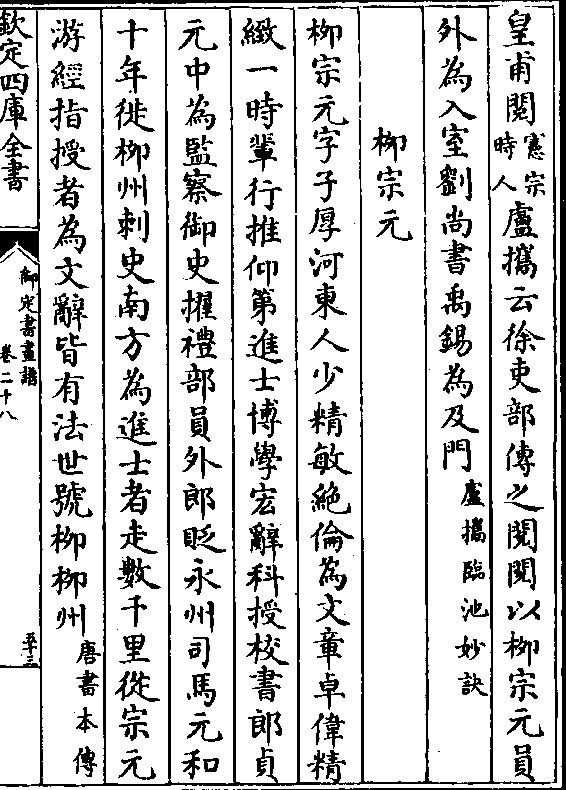 皇甫閱憲宗時人盧攜云徐吏部傳之閱閱以柳宗元員
外為入室劉尚書禹錫為及門盧攜臨池妙訣
柳宗元
柳宗元字子厚河東人少精敏絕倫為文章卓偉精
緻一時輩行推仰第進士博學宏辭科授校書郎貞
元中為監察御史擢禮部員外郎貶永州司馬元和
十年徙柳州刺史南方為進士者走數千里從宗元
游經指授者為文辭皆有法世號柳柳州唐書本傳
欽定四庫全書
御定書畫譜
卷二十八
平三